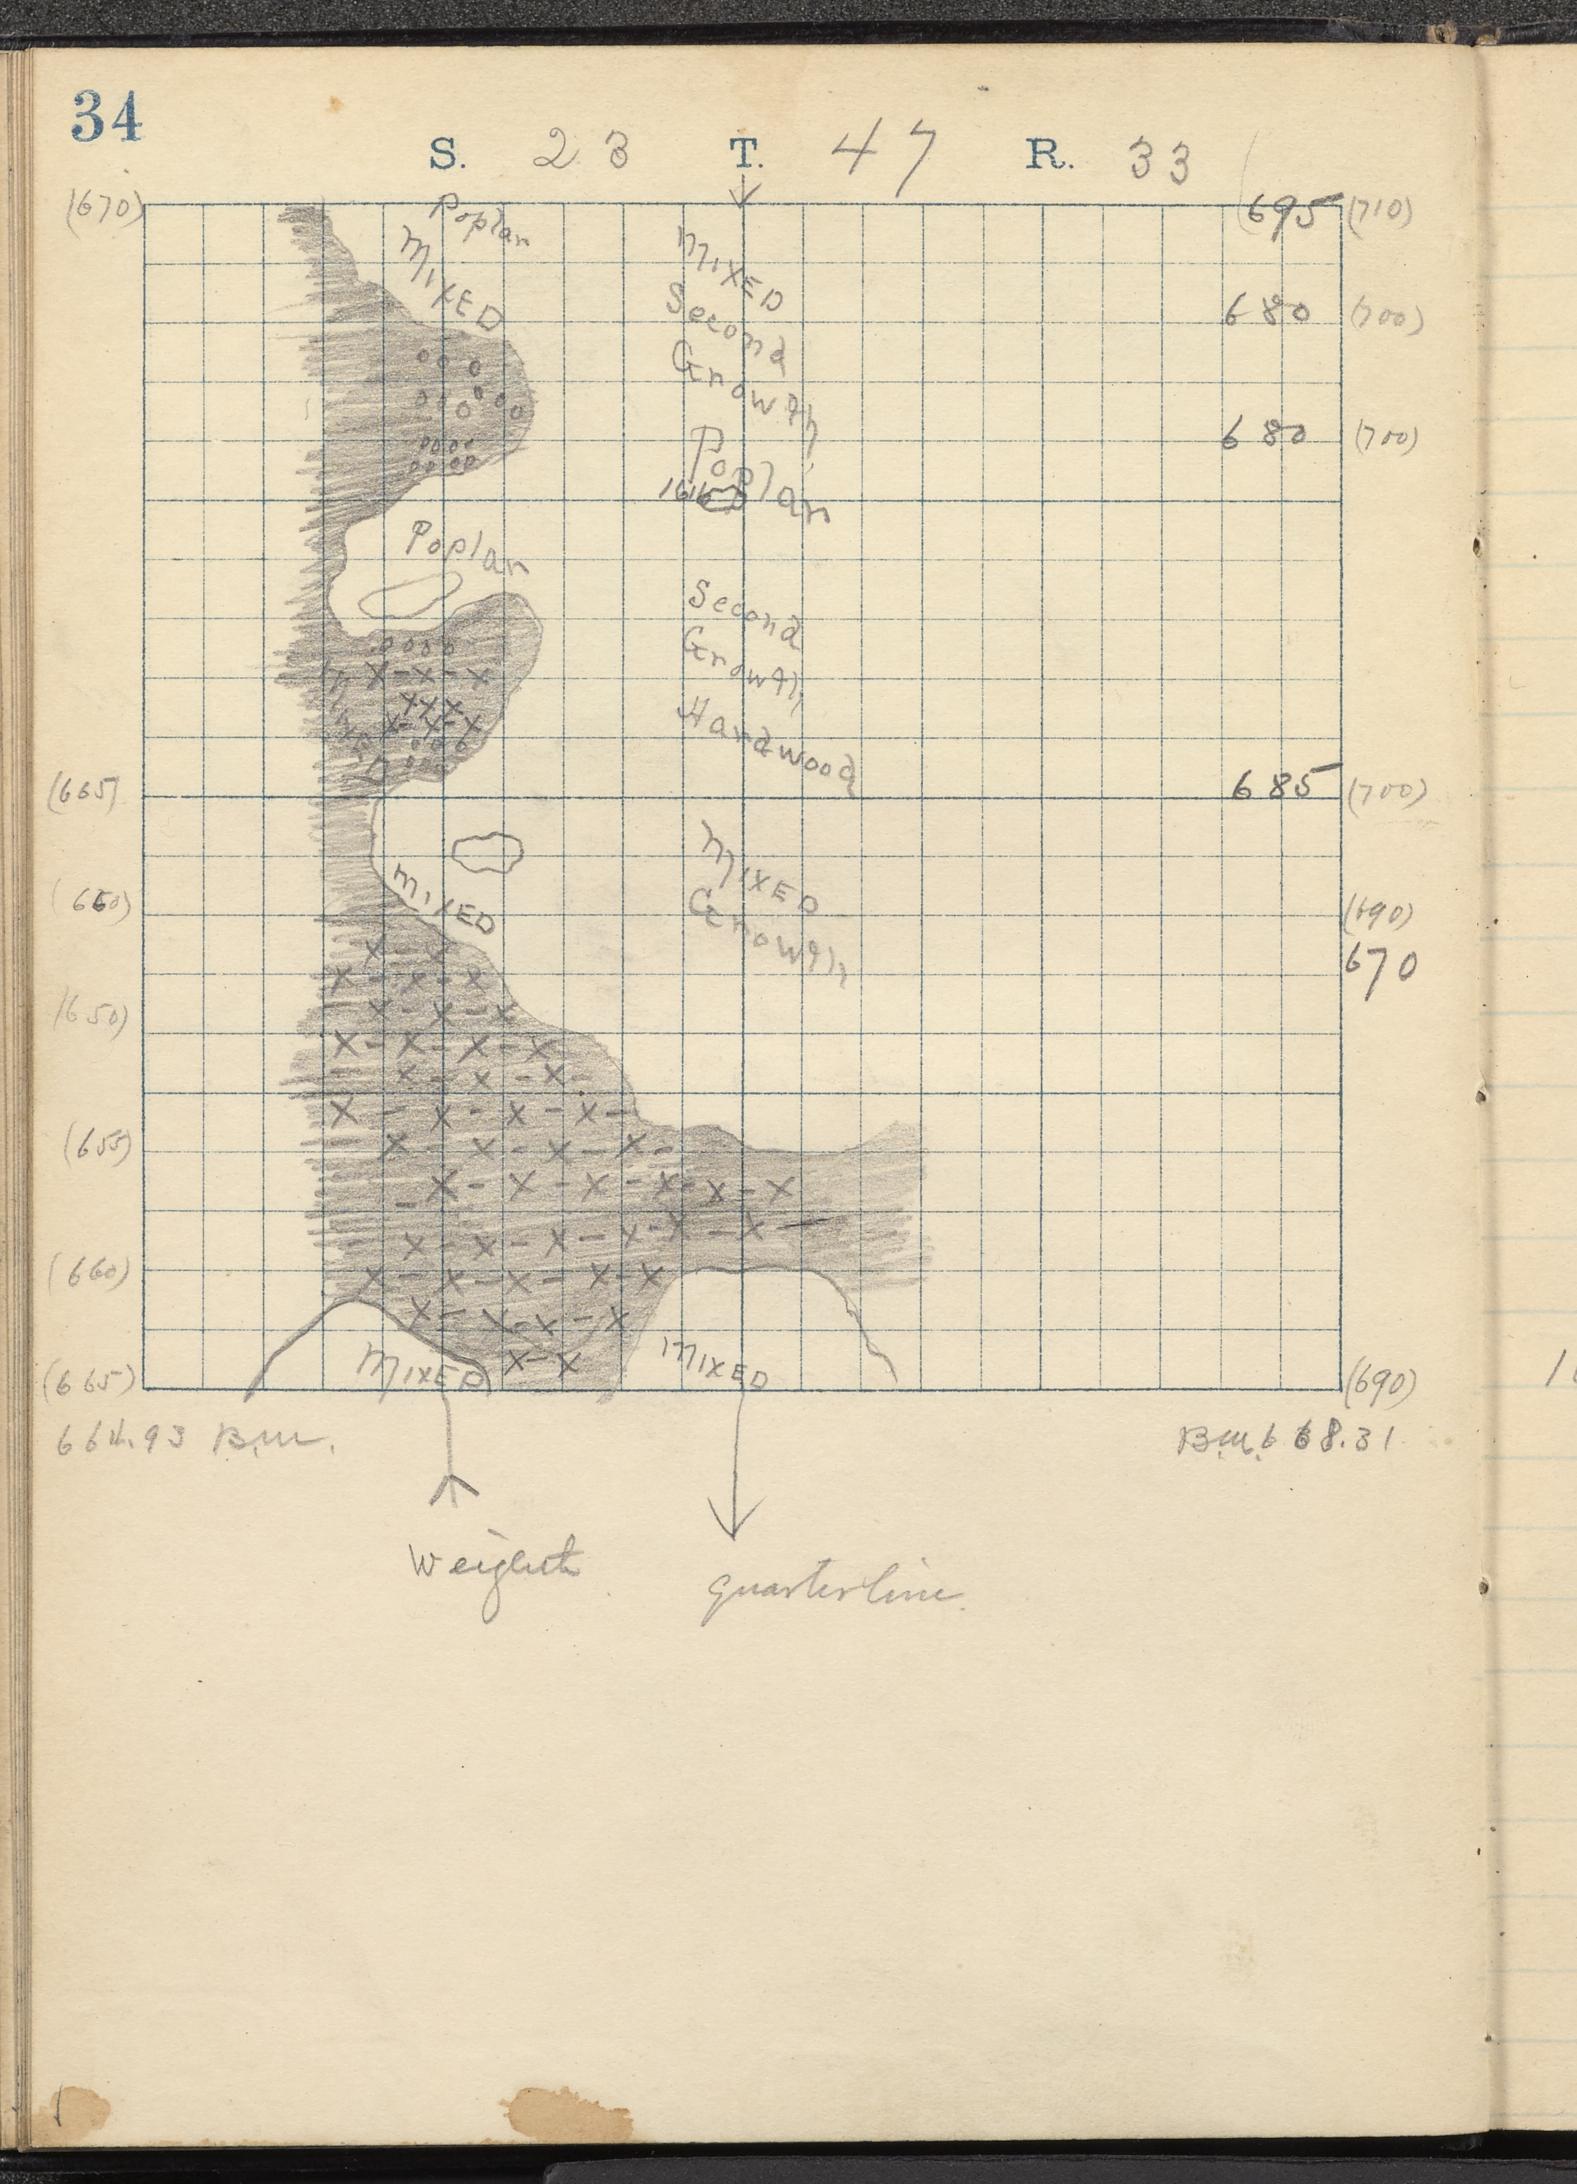 34
S. 23 T. 47 R. 33
(670)
695 (710)
Poplar
MIXED
MIXED
Second
Growth
Poplar
680 (700)
680 (700)
Poplar
Second
Growth
Hardwood
(665)
685 (700)
MIXED
MIXED
Growth
(660)
(690)
670
(650)
(655)
(660)
MIXED
MIXED
(665)
(690)
664.93 B.M.
B.M. 668.31
Weighth
quarterline